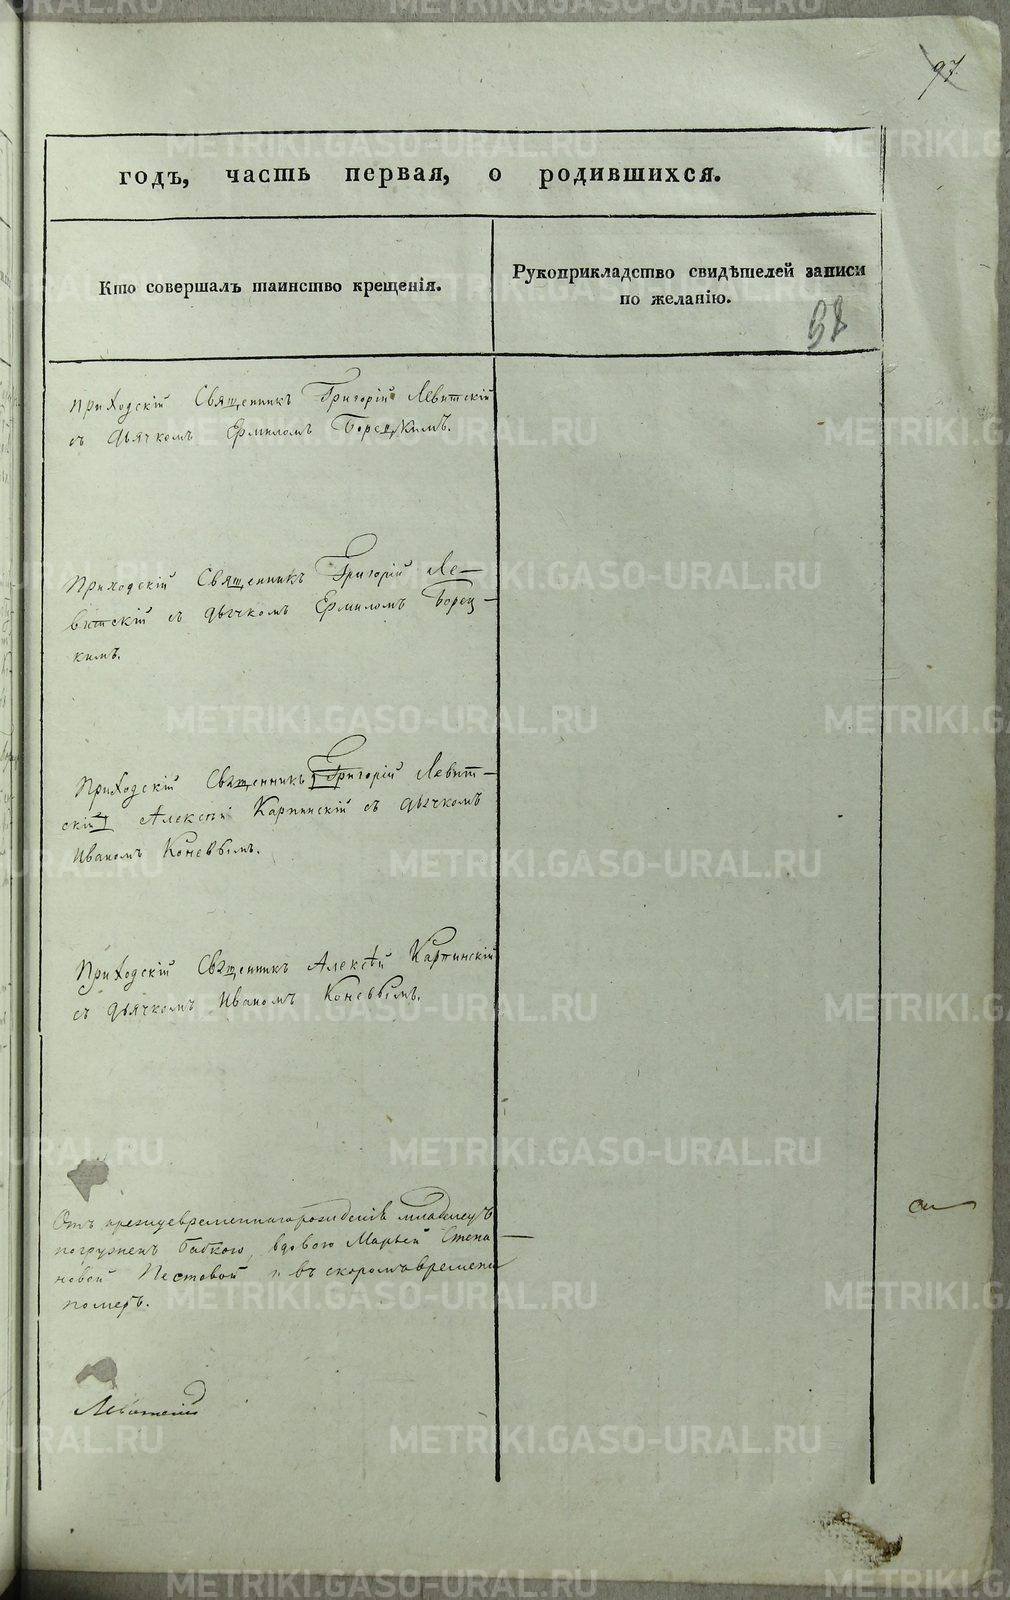 97.
годъ, часть первая, о родившихся.
Кто совершалъ таинство крещенія.
Рукоприкладство свидѣтелей записи
по желанію.
98
Приходскій Священникъ Григорій Левитскій
съ дьячкомъ Ермиломъ Борецкимъ.
Приходскій Священникъ Григорій Ле-
витскій съ дьячкомъ Ермиломъ Борец-
кимъ.
Приходскій Священникъ Григорій Левит-
скій Алексѣй Карпинскій съ дьячкомъ
Иваномъ Коневымъ.
Приходскій Священникъ Алексѣй Карпинскій
съ дьячкомъ Иваномъ Коневымъ.
Отъ преждевременнаго рожденія младенецъ
погруженъ бабкою, вдовою Марьей Степа-
новой Пестовой и въ скоромъ времени
померъ.
Левитскій
METRIKI.GASO-URAL.RU